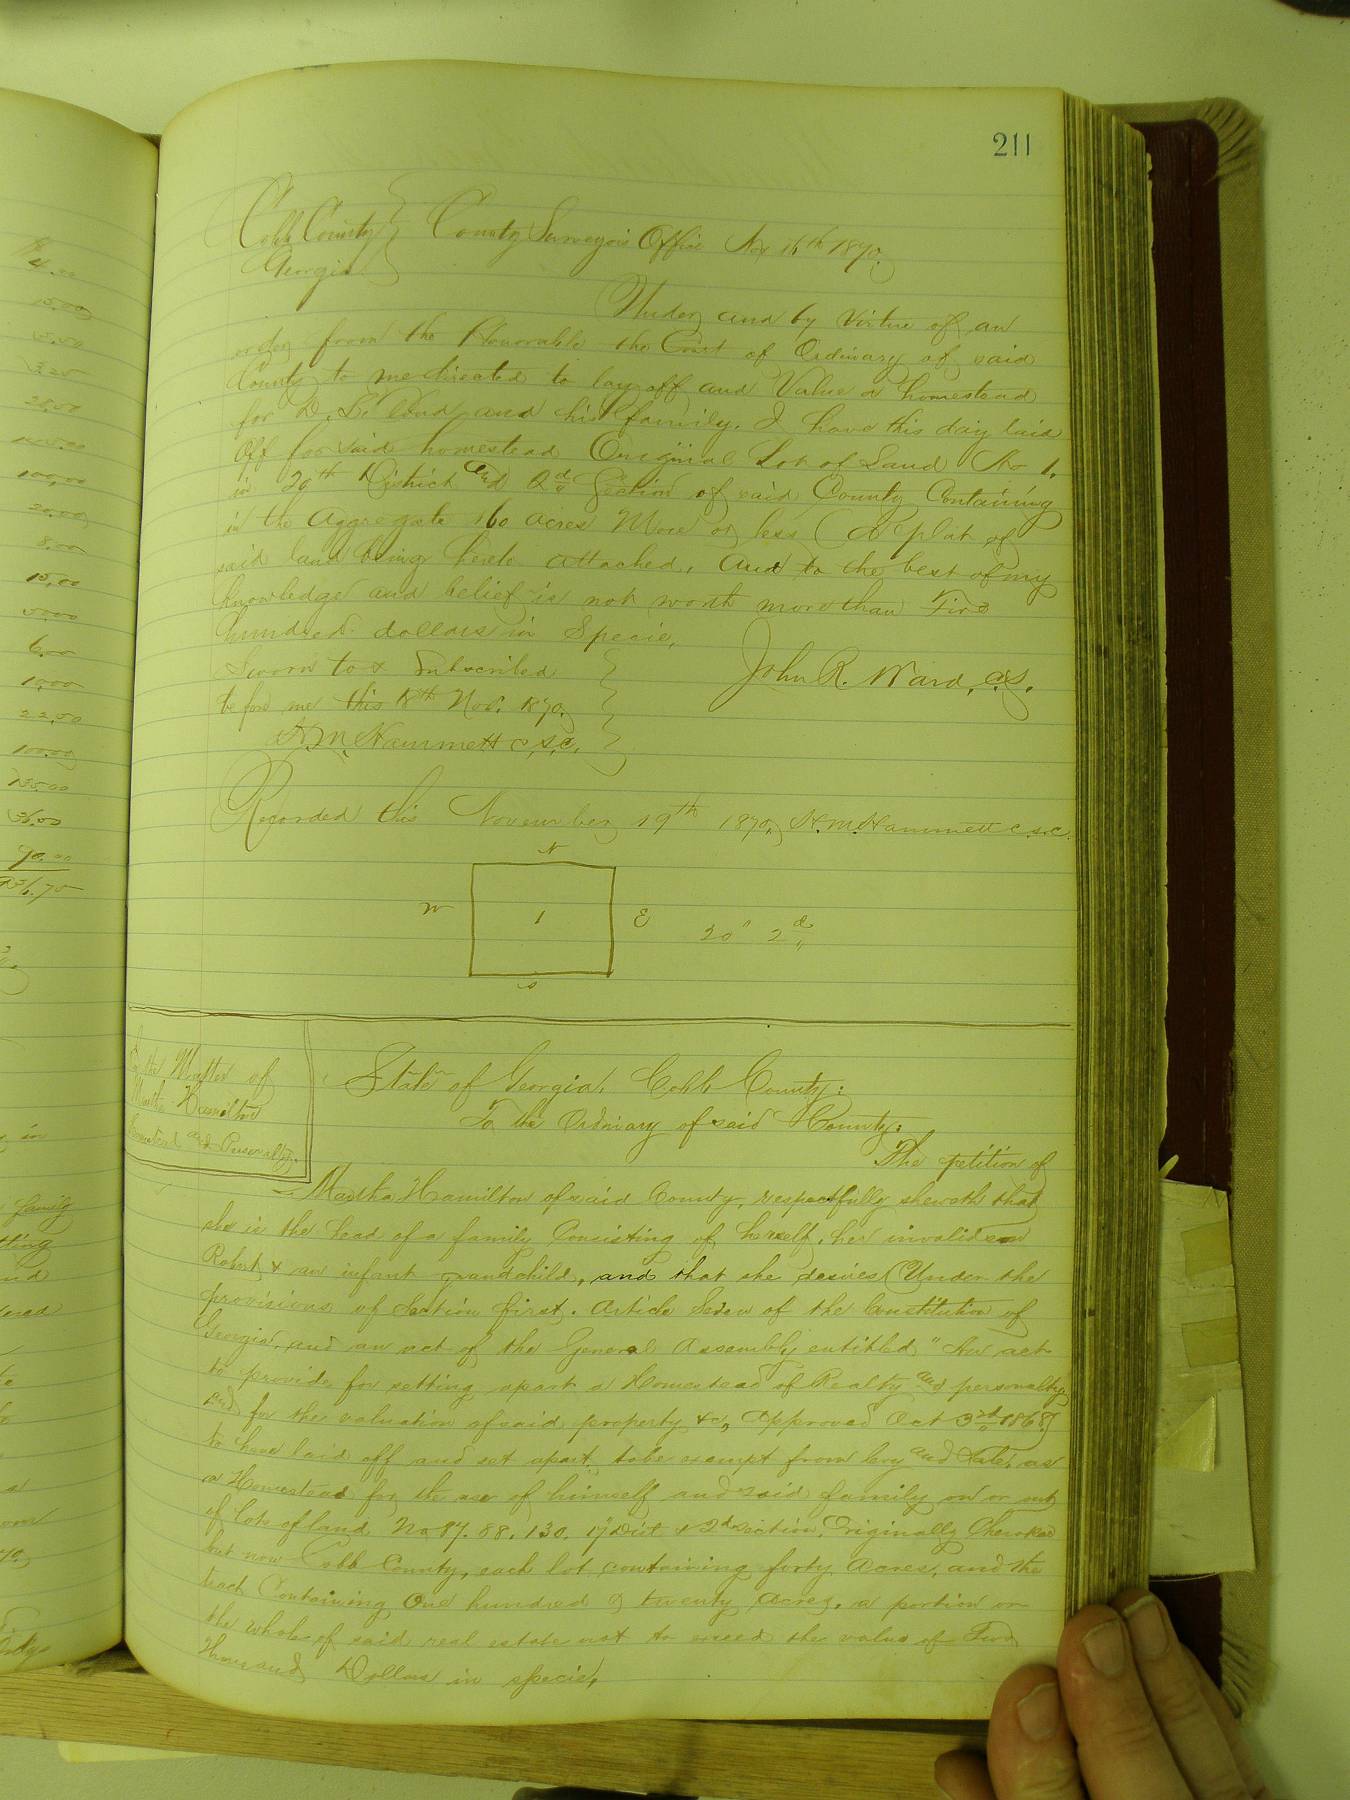 211
Cobb County County Surveyors Office Nov 16th 1870.
Georgia
Under and by virtue of an
order from the Honorable the Court of Ordinary of said
County to me directed to lay off and Value a homestead
for D. and his family. I have this day laid
off for said homestead Original Lot of Land No 1.
in 20th District and 2d Section of said County Containing
in the aggregate 160 acres More or less (a plat of
said land being hereto attached, and to the best of my
knowledge and belief is not worth more than Five
hundred dollars in Specie,
Sworn to & Subscribed
John R. Ward, C.S.
before me this 18th Nov. 1870.
H. M. Hammett c.s.c.
Recorded this November 19th 1870, H. M. Hammett c.s.c.
N
W 1 E 20" 2d
S
In the Matter of
Martha Hamilton
Homestead and Personalty.
State of Georgia, Cobb County:
To the Ordinary of said County:
The petition of
Martha Hamilton of said County, respectfully sheweth that
she is the head of a family Consisting of herself, her invalid son
Robert & an infant grandchild, and that she desires (Under the
provisions of Section first. Article Seven of the Constitution of
Georgia, and an act of the General Assembly entitled, "An act
to provide for setting apart a Homestead of Realty and personalty
and for the valuation of said property &c, approved Oct 3rd 1868)
to have laid off and set apart, to be exempt from levy and sale, as
a Homestead for the use of himself and said family on or out
of lots of land No 87. 88. 130. 17" Dist & 2d section, Originally Cherokee
but now Cobb County, each lot containing forty Acres, and the
tract Containing One hundred & twenty Acres, a portion or
the whole of said real estate not to exceed the value of Two
Thousand Dollars in specie,